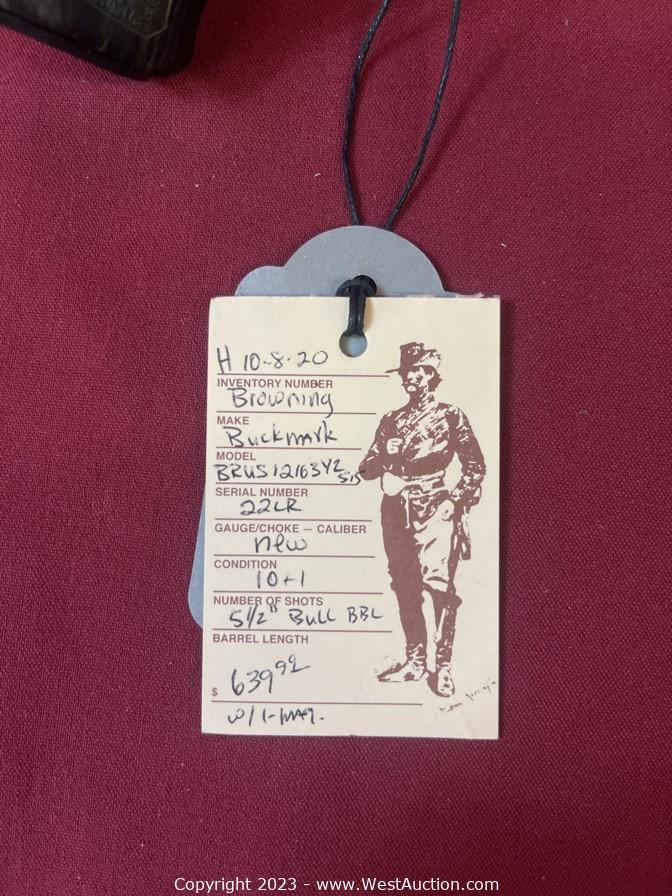 H 10-8-20
INVENTORY NUMBER
Browning
MAKE
Buckmark
MODEL
BRUS12163YZ 515
SERIAL NUMBER
22LR
GAUGE/CHOKE — CALIBER
new
CONDITION
10+1
NUMBER OF SHOTS
5 1/2" Bull BBL
BARREL LENGTH
$ 639.99
w/ 1-mag.
Copyright 2023 - www.WestAuction.com